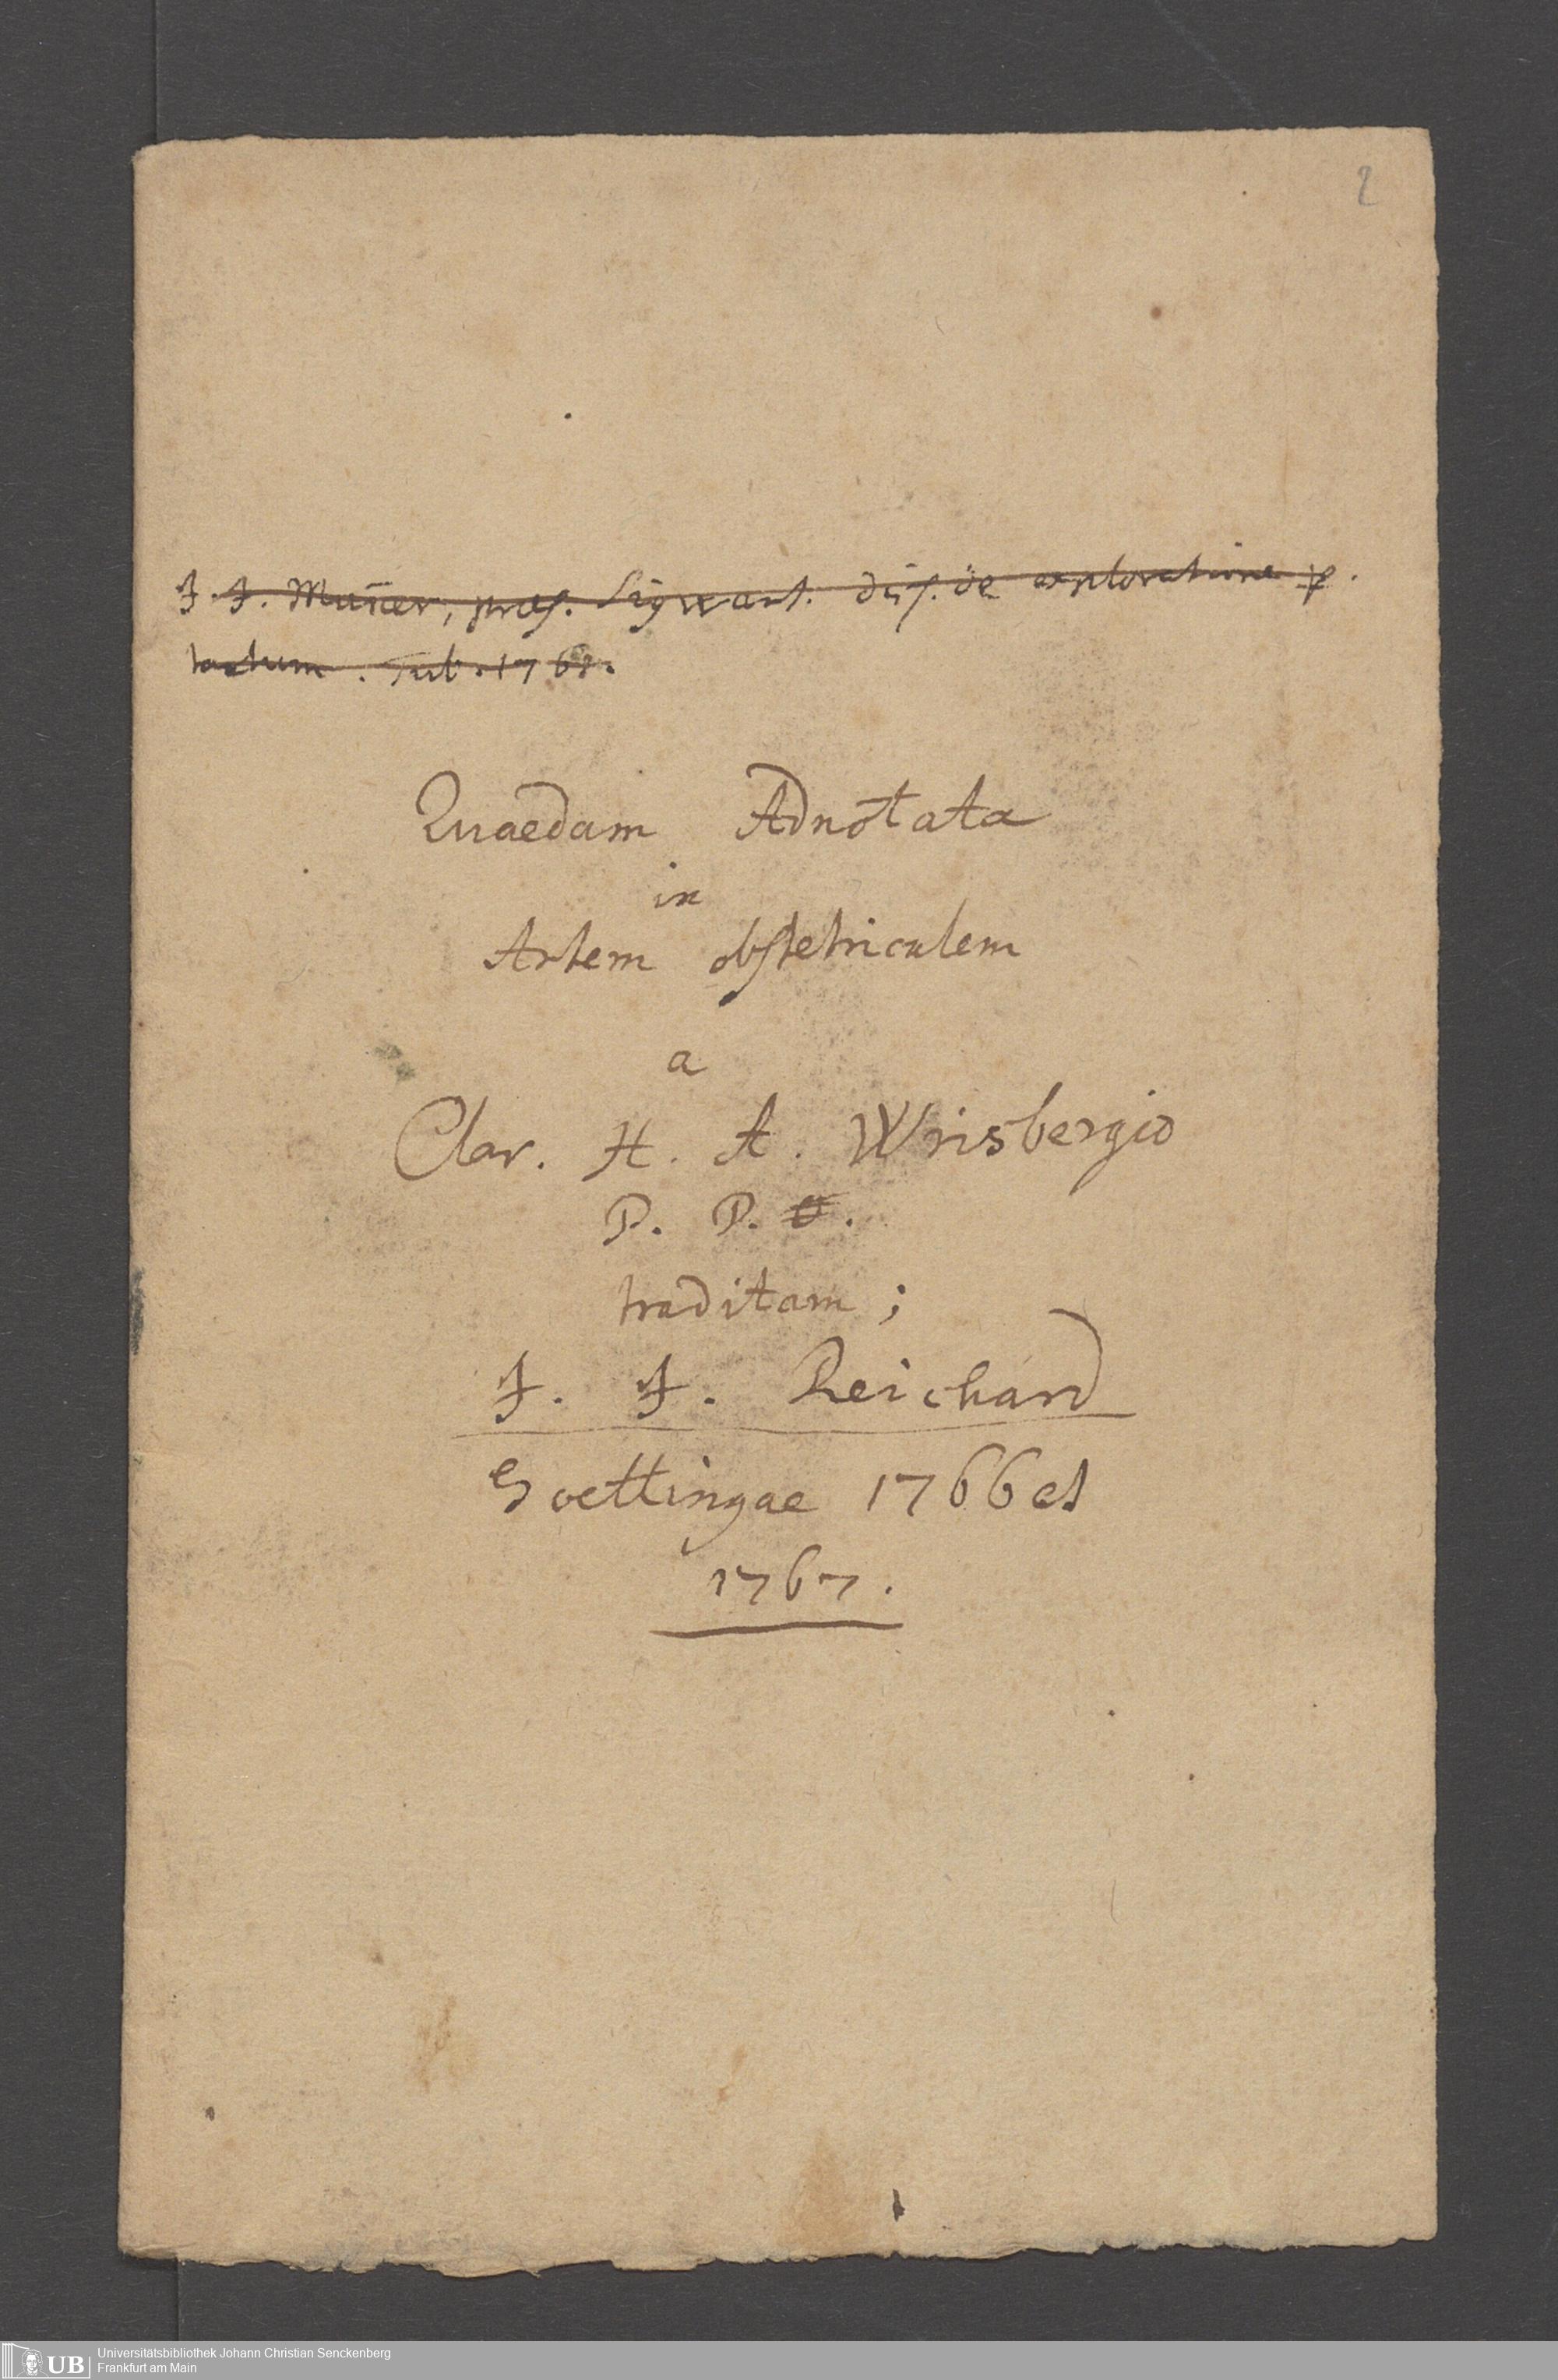 2
J. J. Müller, præs. Sigwart. diss. de exploratione p.
tactum. Tub. 1761.
Quaedam Adnotata
in
Artem obstetriculem
a
Clar. H. A. Wrisbergio
P. P. O.
traditam;
J. J. Reichard
Goettingae 1766 et
1767.
UB
Universitätsbibliothek Johann Christian Senckenberg
Frankfurt am Main